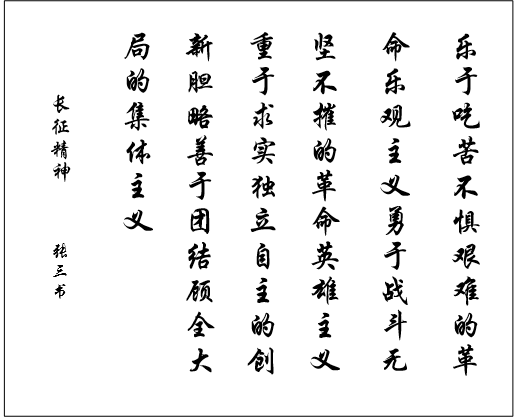 乐于吃苦不惧艰难的革
命乐观主义勇于战斗无
坚不摧的革命英雄主义
重于求实独立自主的创
新胆略善于团结顾全大
局的集体主义
长征精神 张三书